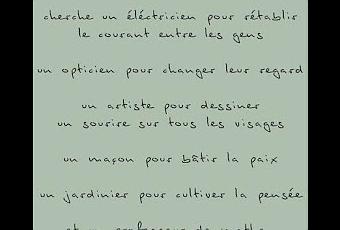 cherche un électricien pour rétablir
le courant entre les gens
un opticien pour changer leur regard
un artiste pour dessiner
un sourire sur tous les visages
un maçon pour bâtir la paix
un jardinier pour cultiver la pensée